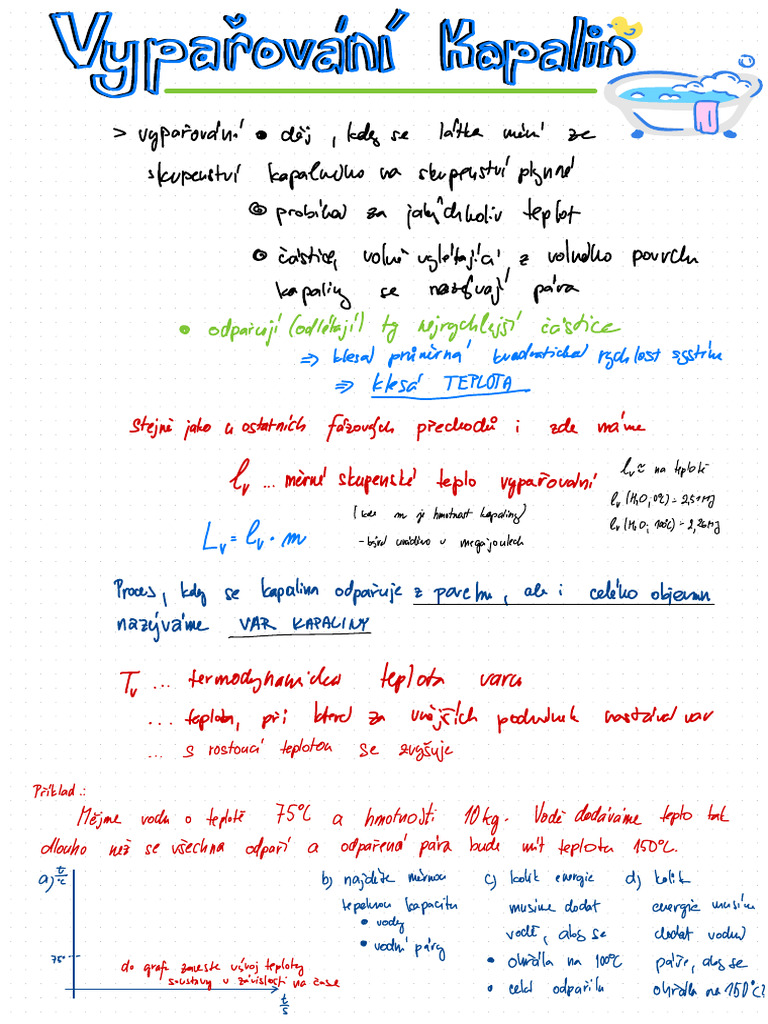 Vypařování Kapalin
> vypařování • děj, kdy se látka mění ze
skupenství kapalného na skupenství plynné
• probíhá za jakýchkoliv teplot
• částice, volně vylétající z volného povrchu
kapaliny se nazývají pára
• odpařují (odlétají) ty nejrychlejší částice
=> klesá průměrná kvadratická rychlost systému
=> klesá TEPLOTA
Stejně jako u ostatních fázových přechodů i zde máme
lv ... měrné skupenské teplo vypařování
Lv = lv · m
(kde m je hmotnost kapaliny)
- bývá uváděno v megajoulech
lv ≈ na teplotě
lv (H₂O, 0°C) = 2,5 MJ
lv (H₂O, 100°C) = 2,26 MJ
Proces, kdy se kapalina odpařuje z povrchu, ale i celého objemu
nazýváme VAR KAPALINY
Tv ... termodynamická teplota varu
... teplota, při které za vnějších podmínek nastává var
... s rostoucí teplotou se zvyšuje
Příklad.:
Mějme vodu o teplotě 75°C a hmotnosti 10kg. Vodě dodáváme teplo tak
dlouho než se všechna odpaří a odpařená pára bude mít teplotu 150°C.
a) t/°C
75°
do grafu zaneste vývoj teploty
soustavy v závislosti na čase
t/s
b) najděte měrnou
tepelnou kapacitu
• vody
• vodní páry
c) kolik energie
musíme dodat
vodě, aby se
• ohřála na 100°C
• celá odpařila
d) kolik
energie musíme
dodat vodní
páře, aby se
ohřála na 150°C?